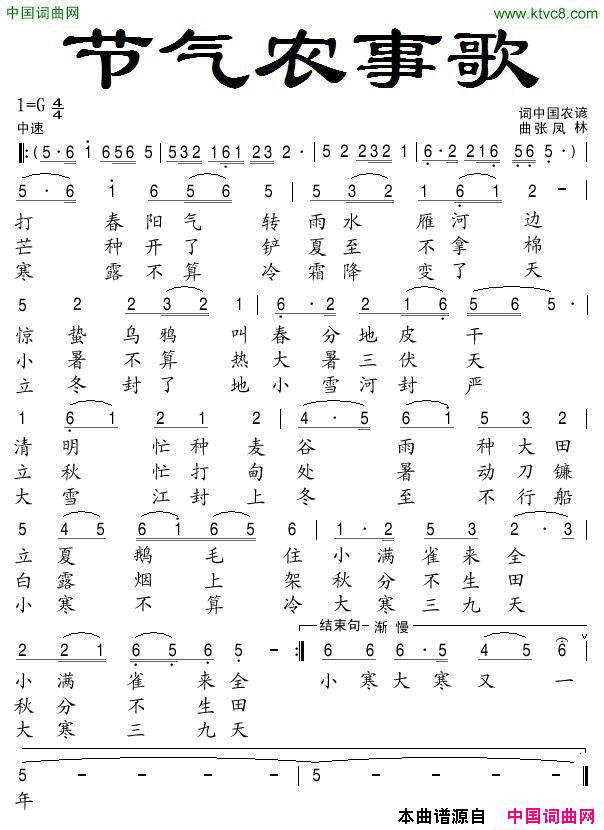 中国词曲网
www.ktvc8.com
节气农事歌
1=G 4/4
中速
词中国农谚
曲张凤林
‖:(5·6 1 656 5 | 532 161 23 2· | 5 2 2321 5 | 6·2 216 56 5·)|
5·6 1 6 5 6 5 | 5·3 5 2 2 | 1 6 1 5 2 - |
打春阳气转雨水雁河边
芒种开了铲夏至不拿棉
寒露不算冷霜降变了天
5 2 2 2 3 2 1 | 6·2 2 1 6 | 5 6 5· |
惊蛰乌鸦叫春分地皮干
小暑不算热大暑三伏天
立冬封了地小雪河封严
1 6 1 2 1 2 | 4·5 6 1 5 3 2 |
清明忙种麦谷雨种大田
立秋忙打甸处暑动刀镰
大雪江封上冬至不行船
5 4 5 6 1 6 5 5 | 1·2 5 5 3 2·3 |
立夏鹅毛住小满雀来全
白露烟上架秋分不生田
小寒不算冷大寒三九天
结束句 渐慢
2 2 1 6 5 6 5 - :‖ 6 6 6·5 4 5 6 |
小满雀来全 小寒大寒又一
秋分不生田
大寒三九天
5 - - - | 5 - - - ‖
年
本曲谱源自 中国词曲网